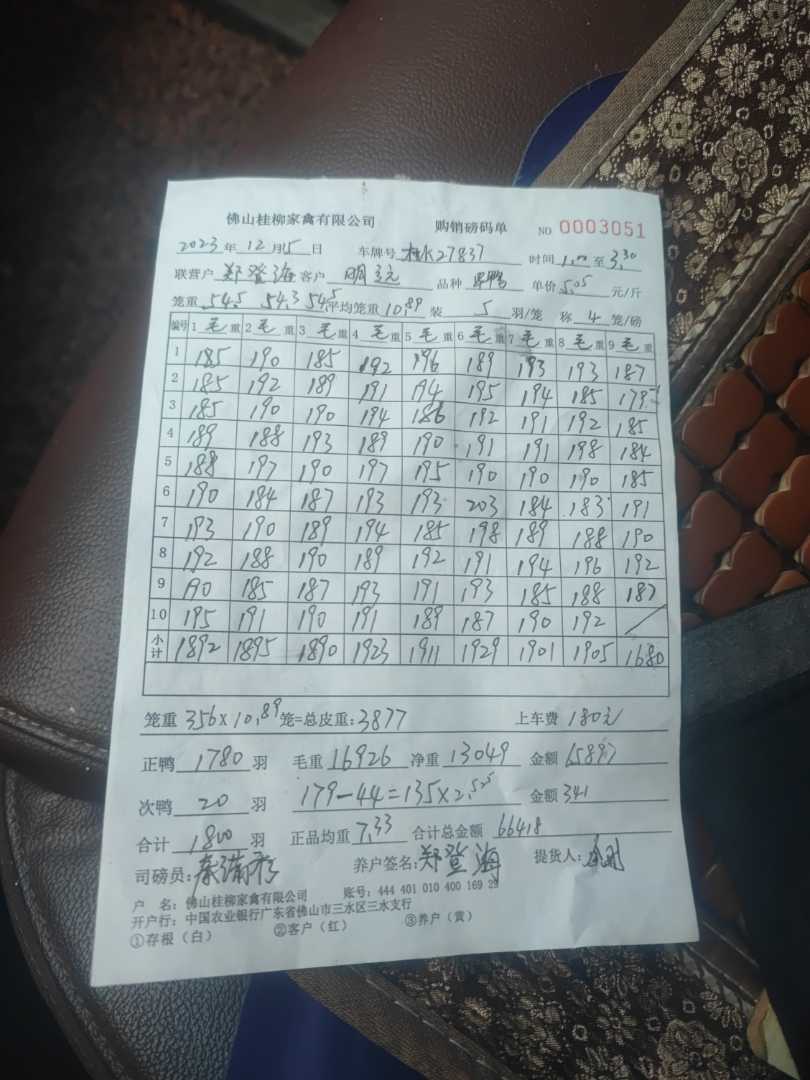 佛山桂柳家禽有限公司 购销磅码单 NO 0003051
2023年12月5日 车牌号 27837 时间1.00至3.30
联营户 郑登海 客户 明 品种 鸭 单价5.05元/斤
笼重 54.5 54.3 54.5 平均笼重10.89 装 5 羽/笼 称 4 笼/磅
编号 1 毛重 2 毛重 3 毛重 4 毛重 5 毛重 6 毛重 7 毛重 8 毛重 9 毛重
1 185 190 185 192 196 189 193 193 187
2 185 192 189 191 194 195 194 185 179
3 185 190 190 194 186 192 191 192 185
4 189 188 193 189 190 191 191 198 184
5 188 197 190 197 195 190 190 190 185
6 190 184 187 193 193 203 184 183 191
7 193 190 189 194 185 198 189 188 190
8 192 188 190 189 192 191 194 196 192
9 190 185 187 193 191 193 185 188 187
10 195 191 190 191 189 187 190 192 /
小计 1892 1895 1890 1923 1911 1929 1901 1905 1680
笼重 356×10.89 笼=总皮重:3877 上车费 180元
正鸭 1780 羽 毛重 16926 净重 13049 金额 65897
次鸭 20 羽 179-44=135×2.525 金额 341
合计 1800 羽 正品均重 7.33 合计总金额 66418
司磅员: 养户签名: 郑登海 提货人:
户 名: 佛山桂柳家禽有限公司 账号: 444 401 010 400 169 29
开户行: 中国农业银行广东省佛山市三水区三水支行
①存根(白) ②客户(红) ③养户(黄)